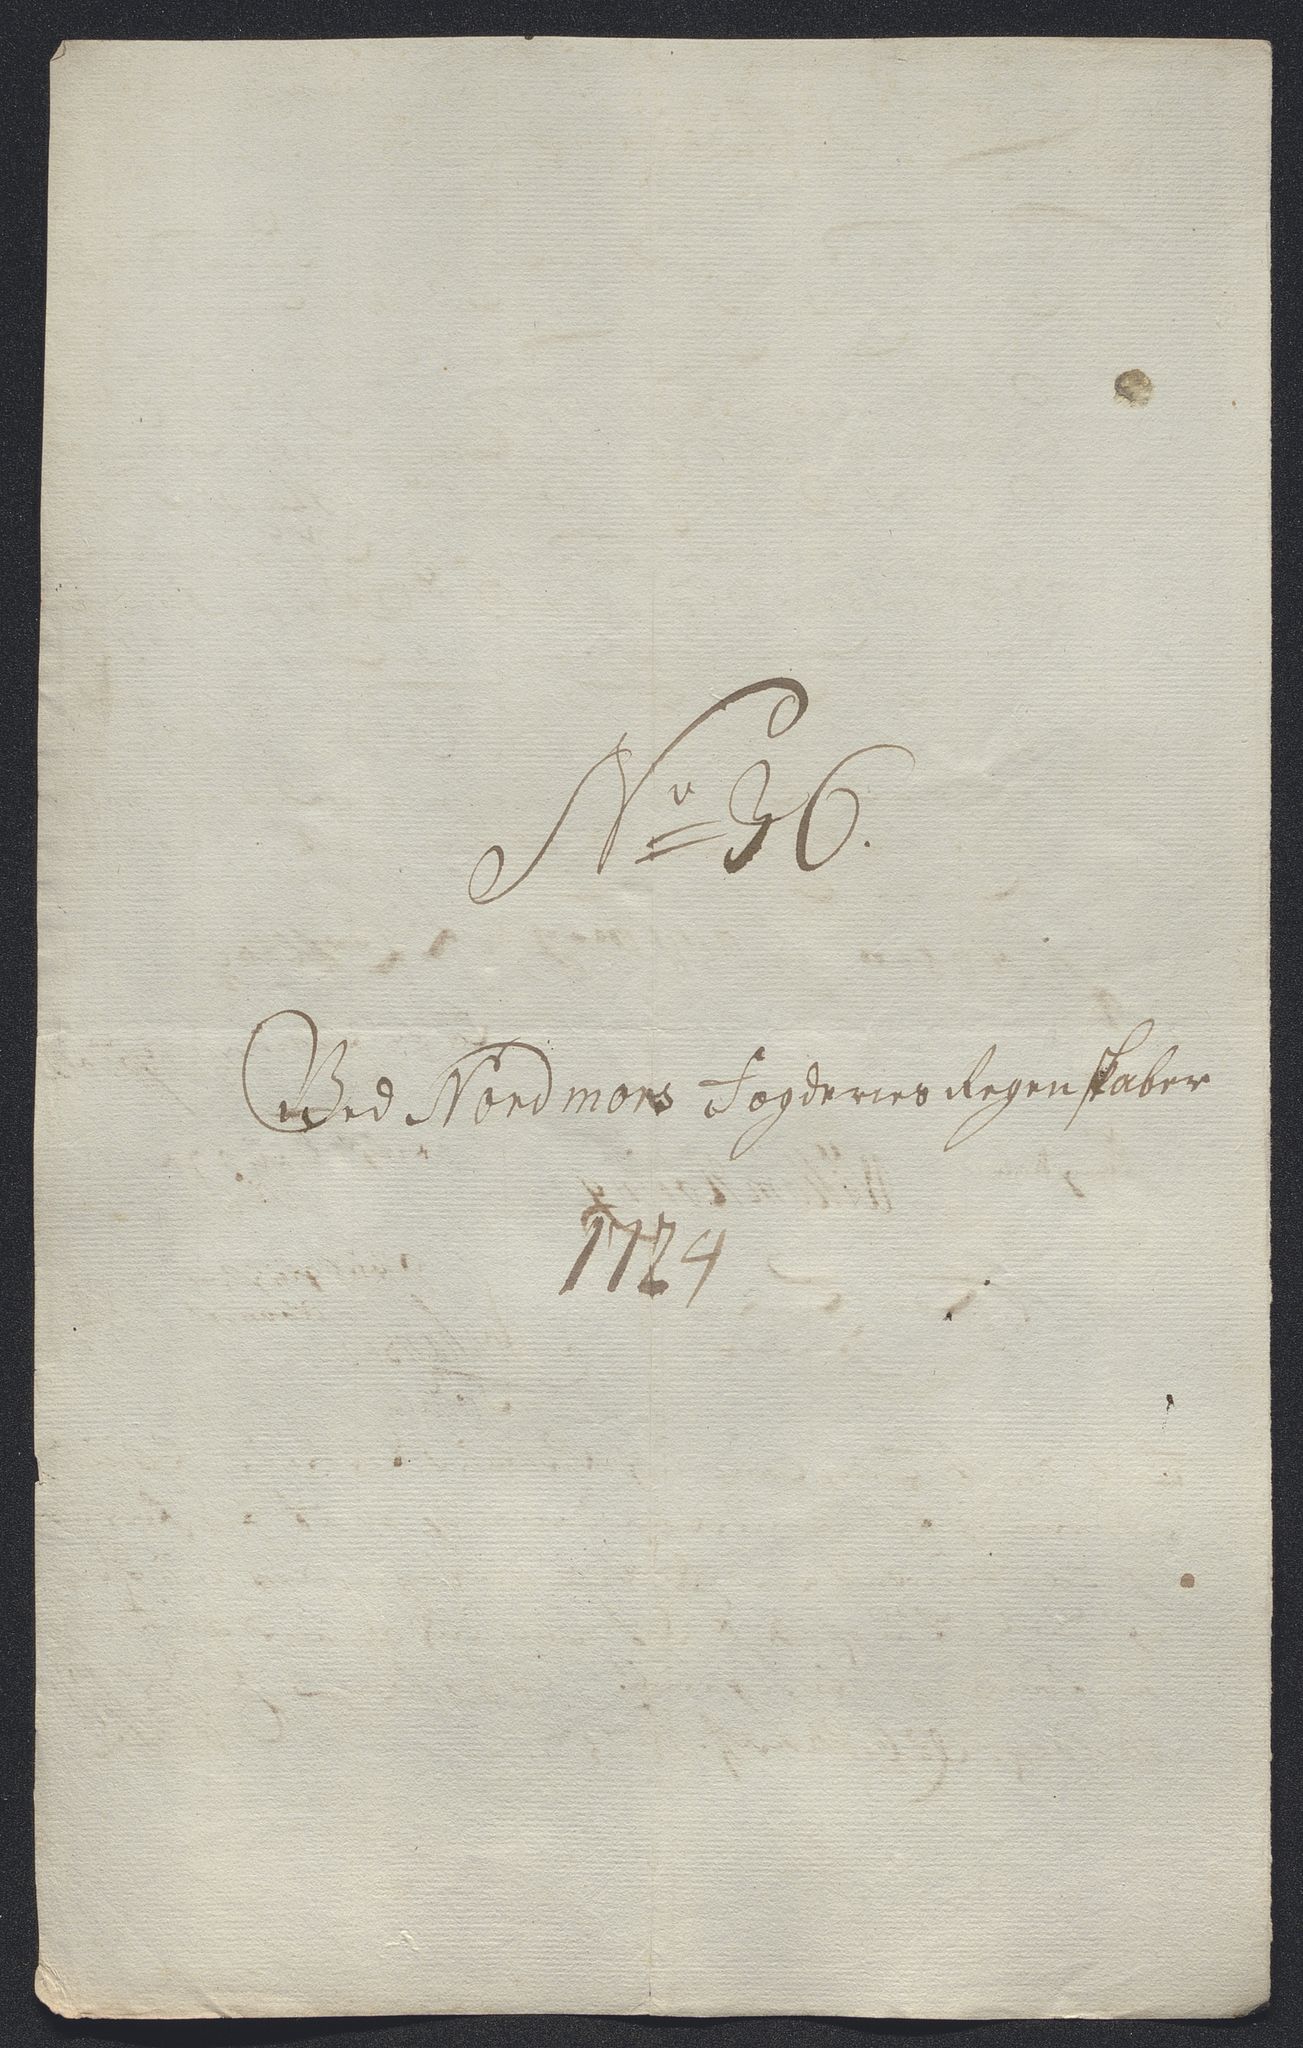 No 36.
Ved Nordmørs Fogderies Regenskaber
1724